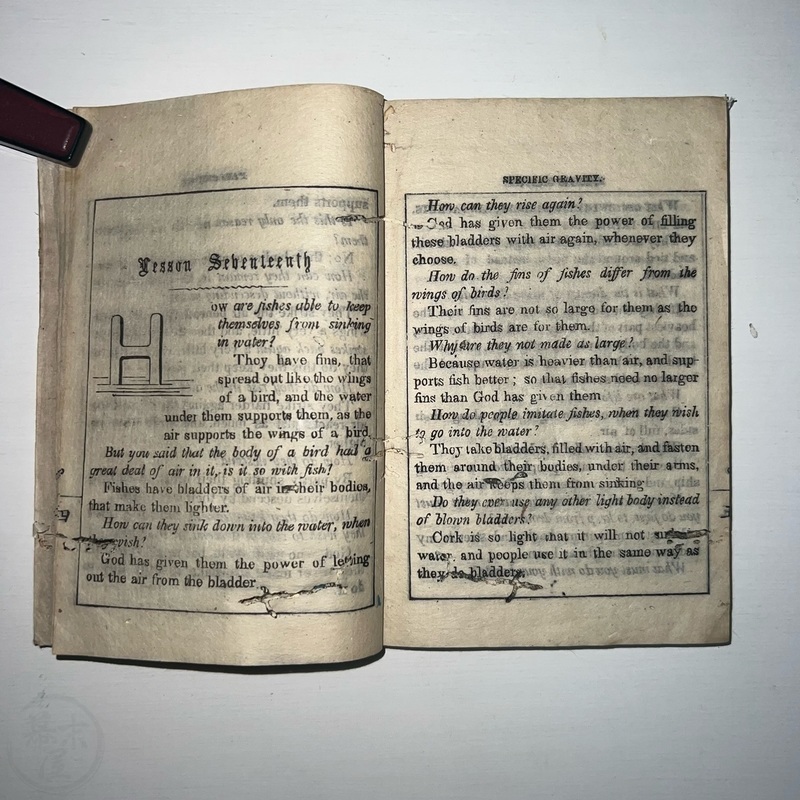 Lesson Seventeenth
How are fishes able to keep
themselves from sinking
in water?
They have fins, that
spread out like the wings
of a bird, and the water
under them supports them, as the
air supports the wings of a bird.
But you said that the body of a bird had a
great deal of air in it, is it so with fish?
Fishes have bladders of air in their bodies,
that make them lighter.
How can they sink down into the water, when
wish?
God has given them the power of letting
out the air from the bladder
SPECIFIC GRAVITY.
How can they rise again?
God has given them the power of filling
these bladders with air again, whenever they
choose.
How do the fins of fishes differ from the
wings of birds?
Their fins are not so large for them as the
wings of birds are for them.
Why are they not made as large?
Because water is heavier than air, and sup-
ports fish better; so that fishes need no larger
fins than God has given them
How do people imitate fishes, when they wish
to go into the water?
They take bladders, filled with air, and fasten
them around their bodies, under their arms,
and the air keeps them from sinking
Do they ever use any other light body instead
of blown bladders?
Cork is so light that it will not
water, and people use it in the same way as
they do bladders.